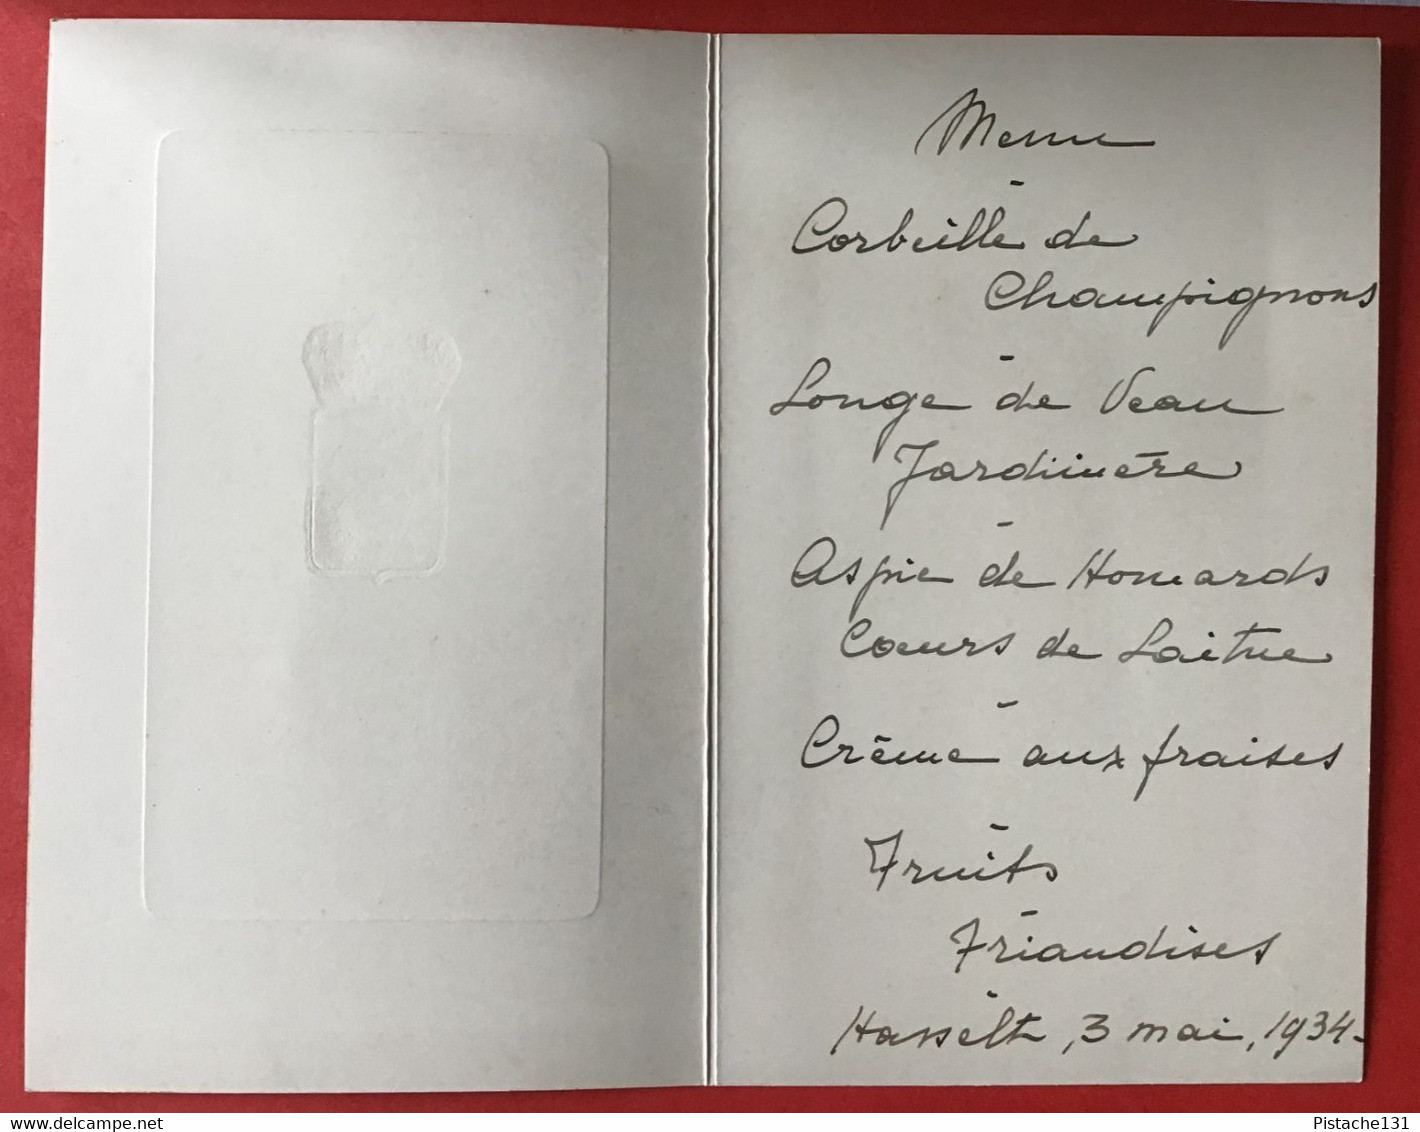 Menu
-
Corbeille de
Champignons
-
Longe de Veau
Jardinière
-
Aspic de Homards
Cœurs de Laitue
-
Crème aux fraises
-
Fruits
-
Friandises
-
Hasselt, 3 mai, 1934-
Pistache131